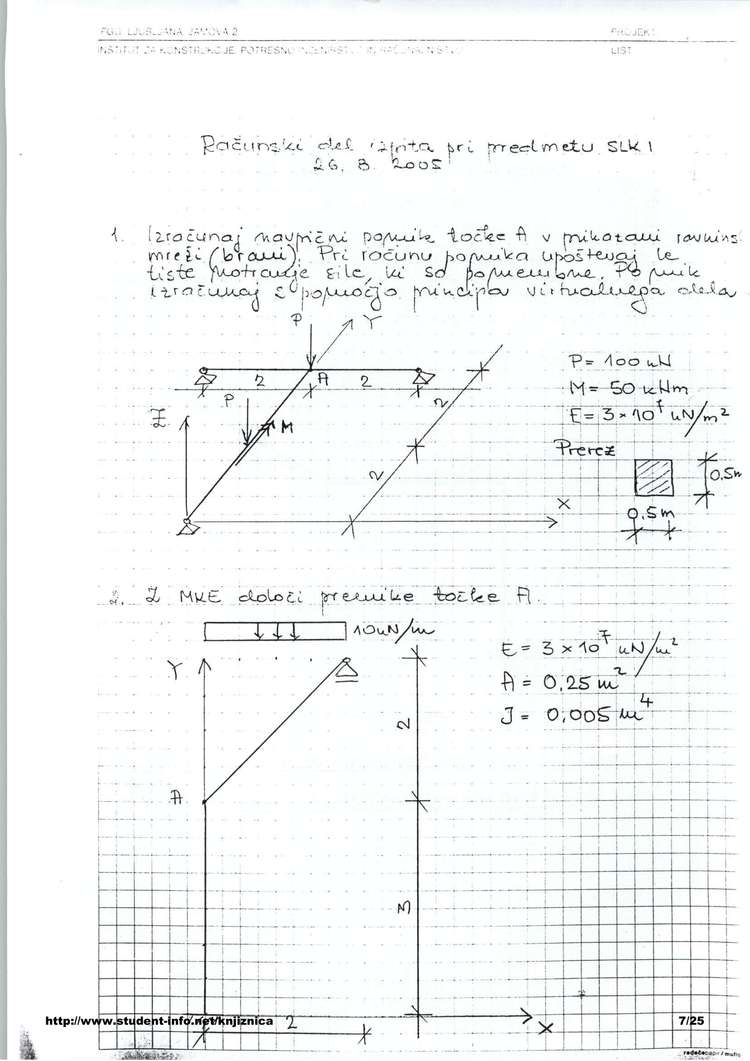 FGG LJUBLJANA, JAMOVA 2
PROJEKT
INSTITUT ZA KONSTRUKCIJE, POTRESNO INŽENIRSTVO IN RAČUNALNIŠTVO
LIST
Računski del izpita pri predmetu SLK I
26. 8. 2005
1. Izračunaj navpični pomik točke A v prikazani ravnins
mreži (brani). Pri računu pomika upoštevaj le
tiste notranje sile, ki so pomembne. Pomik
izračunaj s pomočjo principa virtualnega dela
P
Y
2
A
2
P
M
Z
2
2
X
P = 100 kN
M = 50 kNm
E = 3 × 10⁷ kN/m²
Prerez
0.5m
0.5m
2. Z MKE določi premike točke A.
10 kN/m
Y
A
2
3
2
X
E = 3 × 10⁷ kN/m²
A = 0,25 m²
J = 0,005 m⁴
http://www.student-info.net/knjiznica
7/25